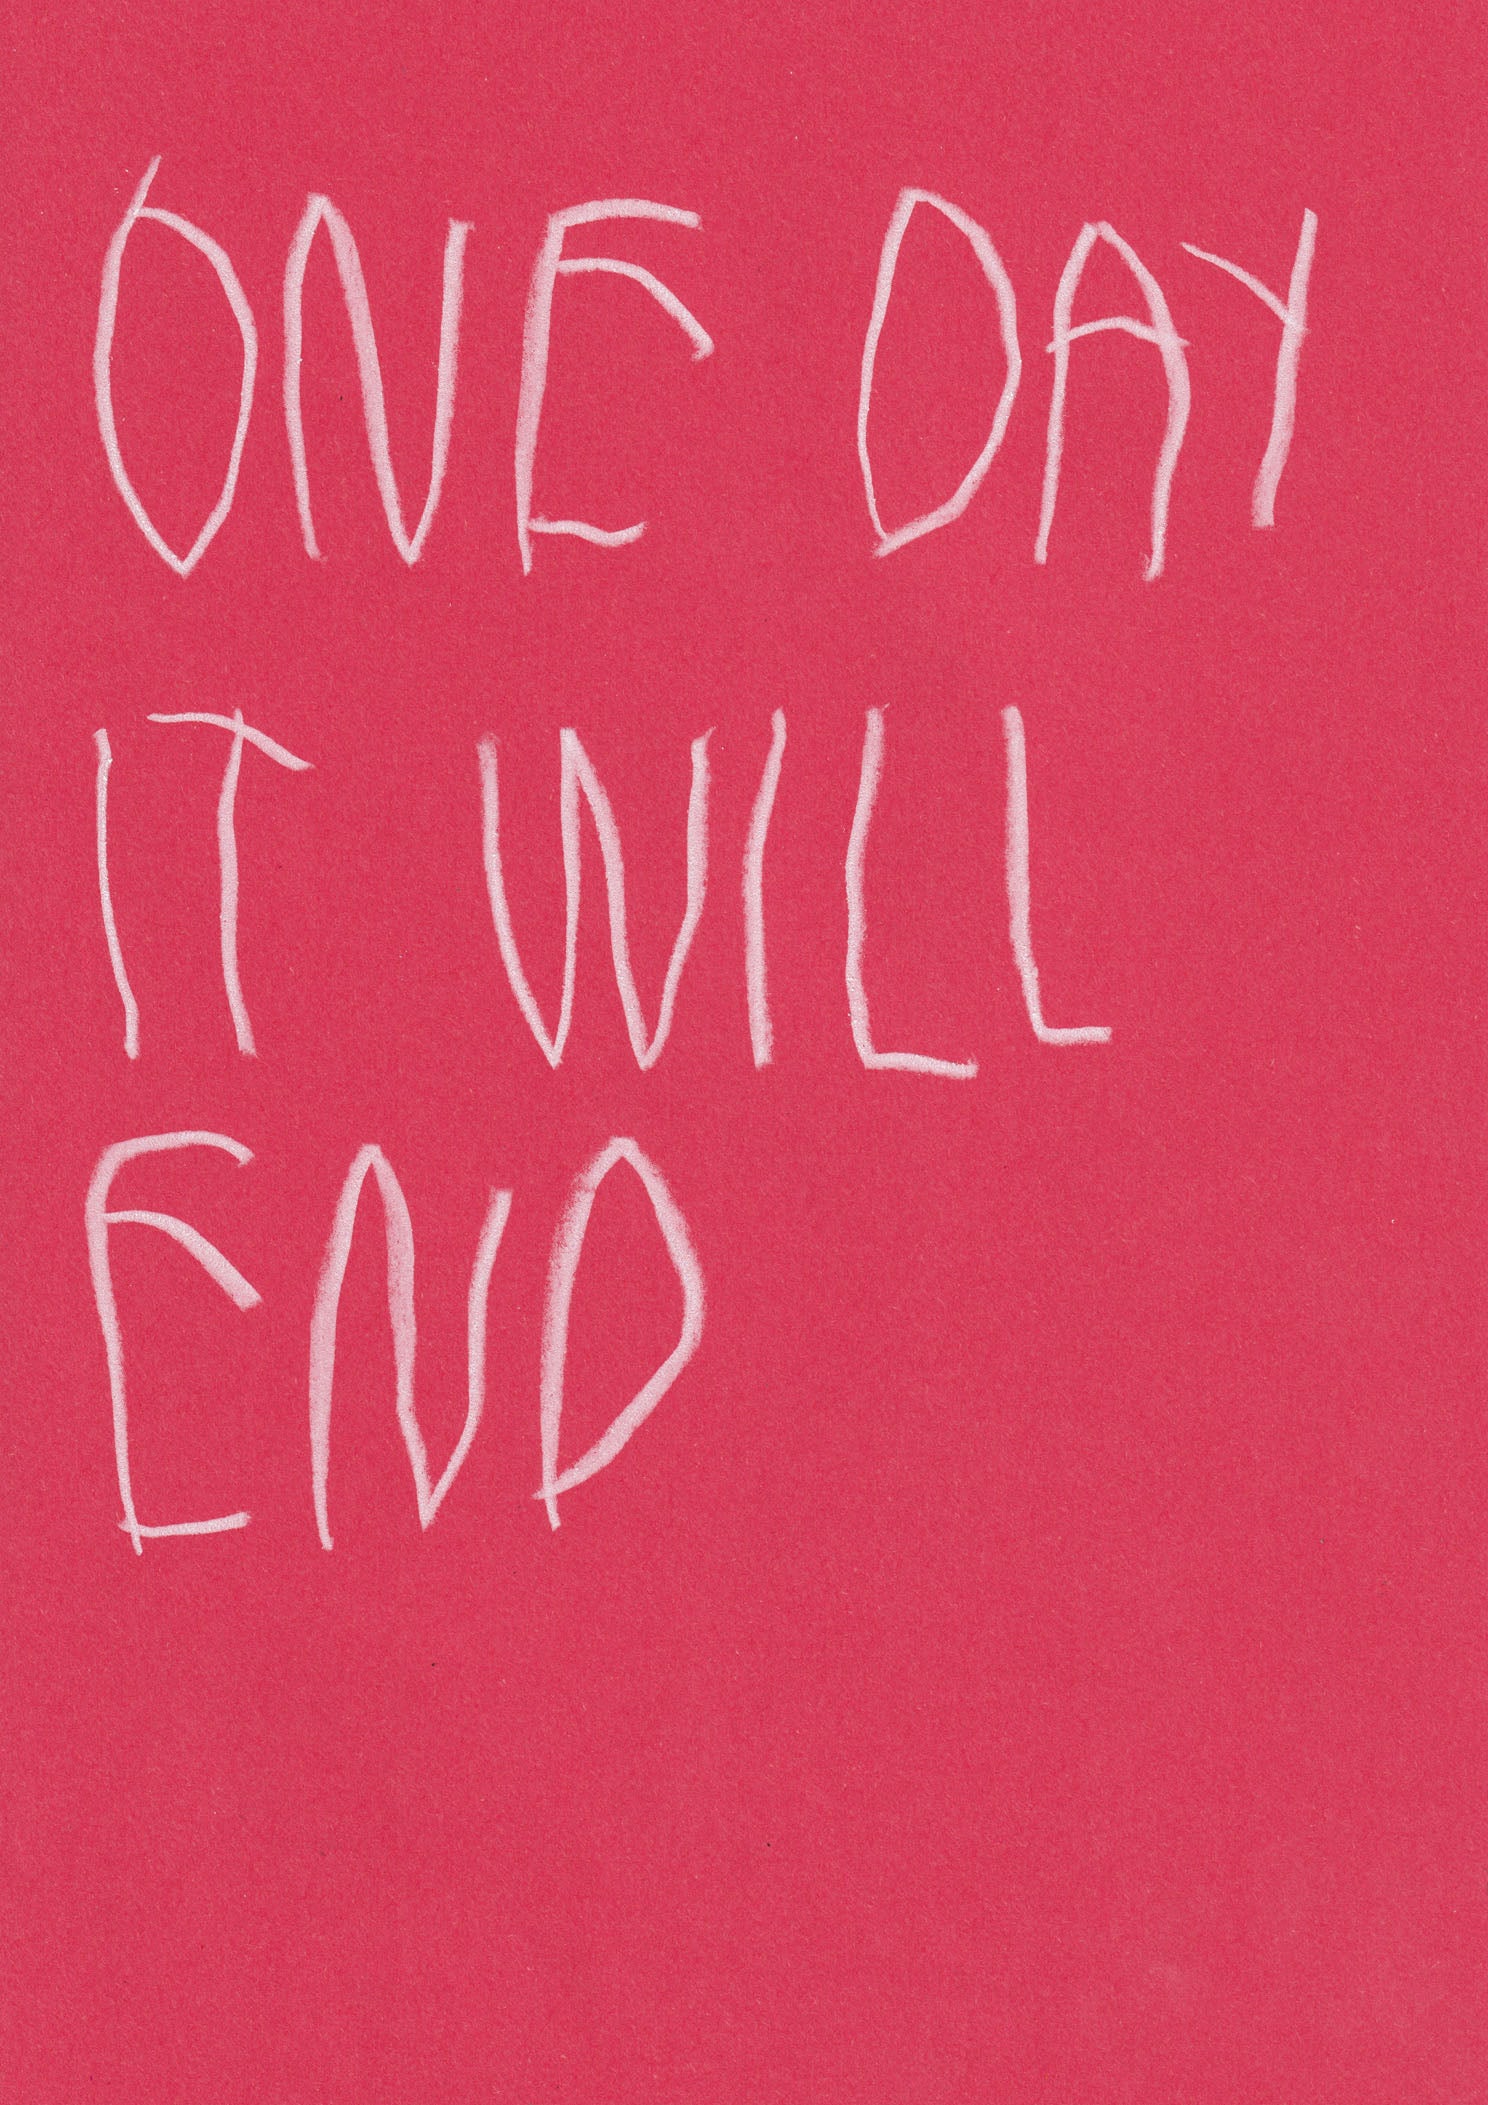 ONE DAY
IT WILL
END